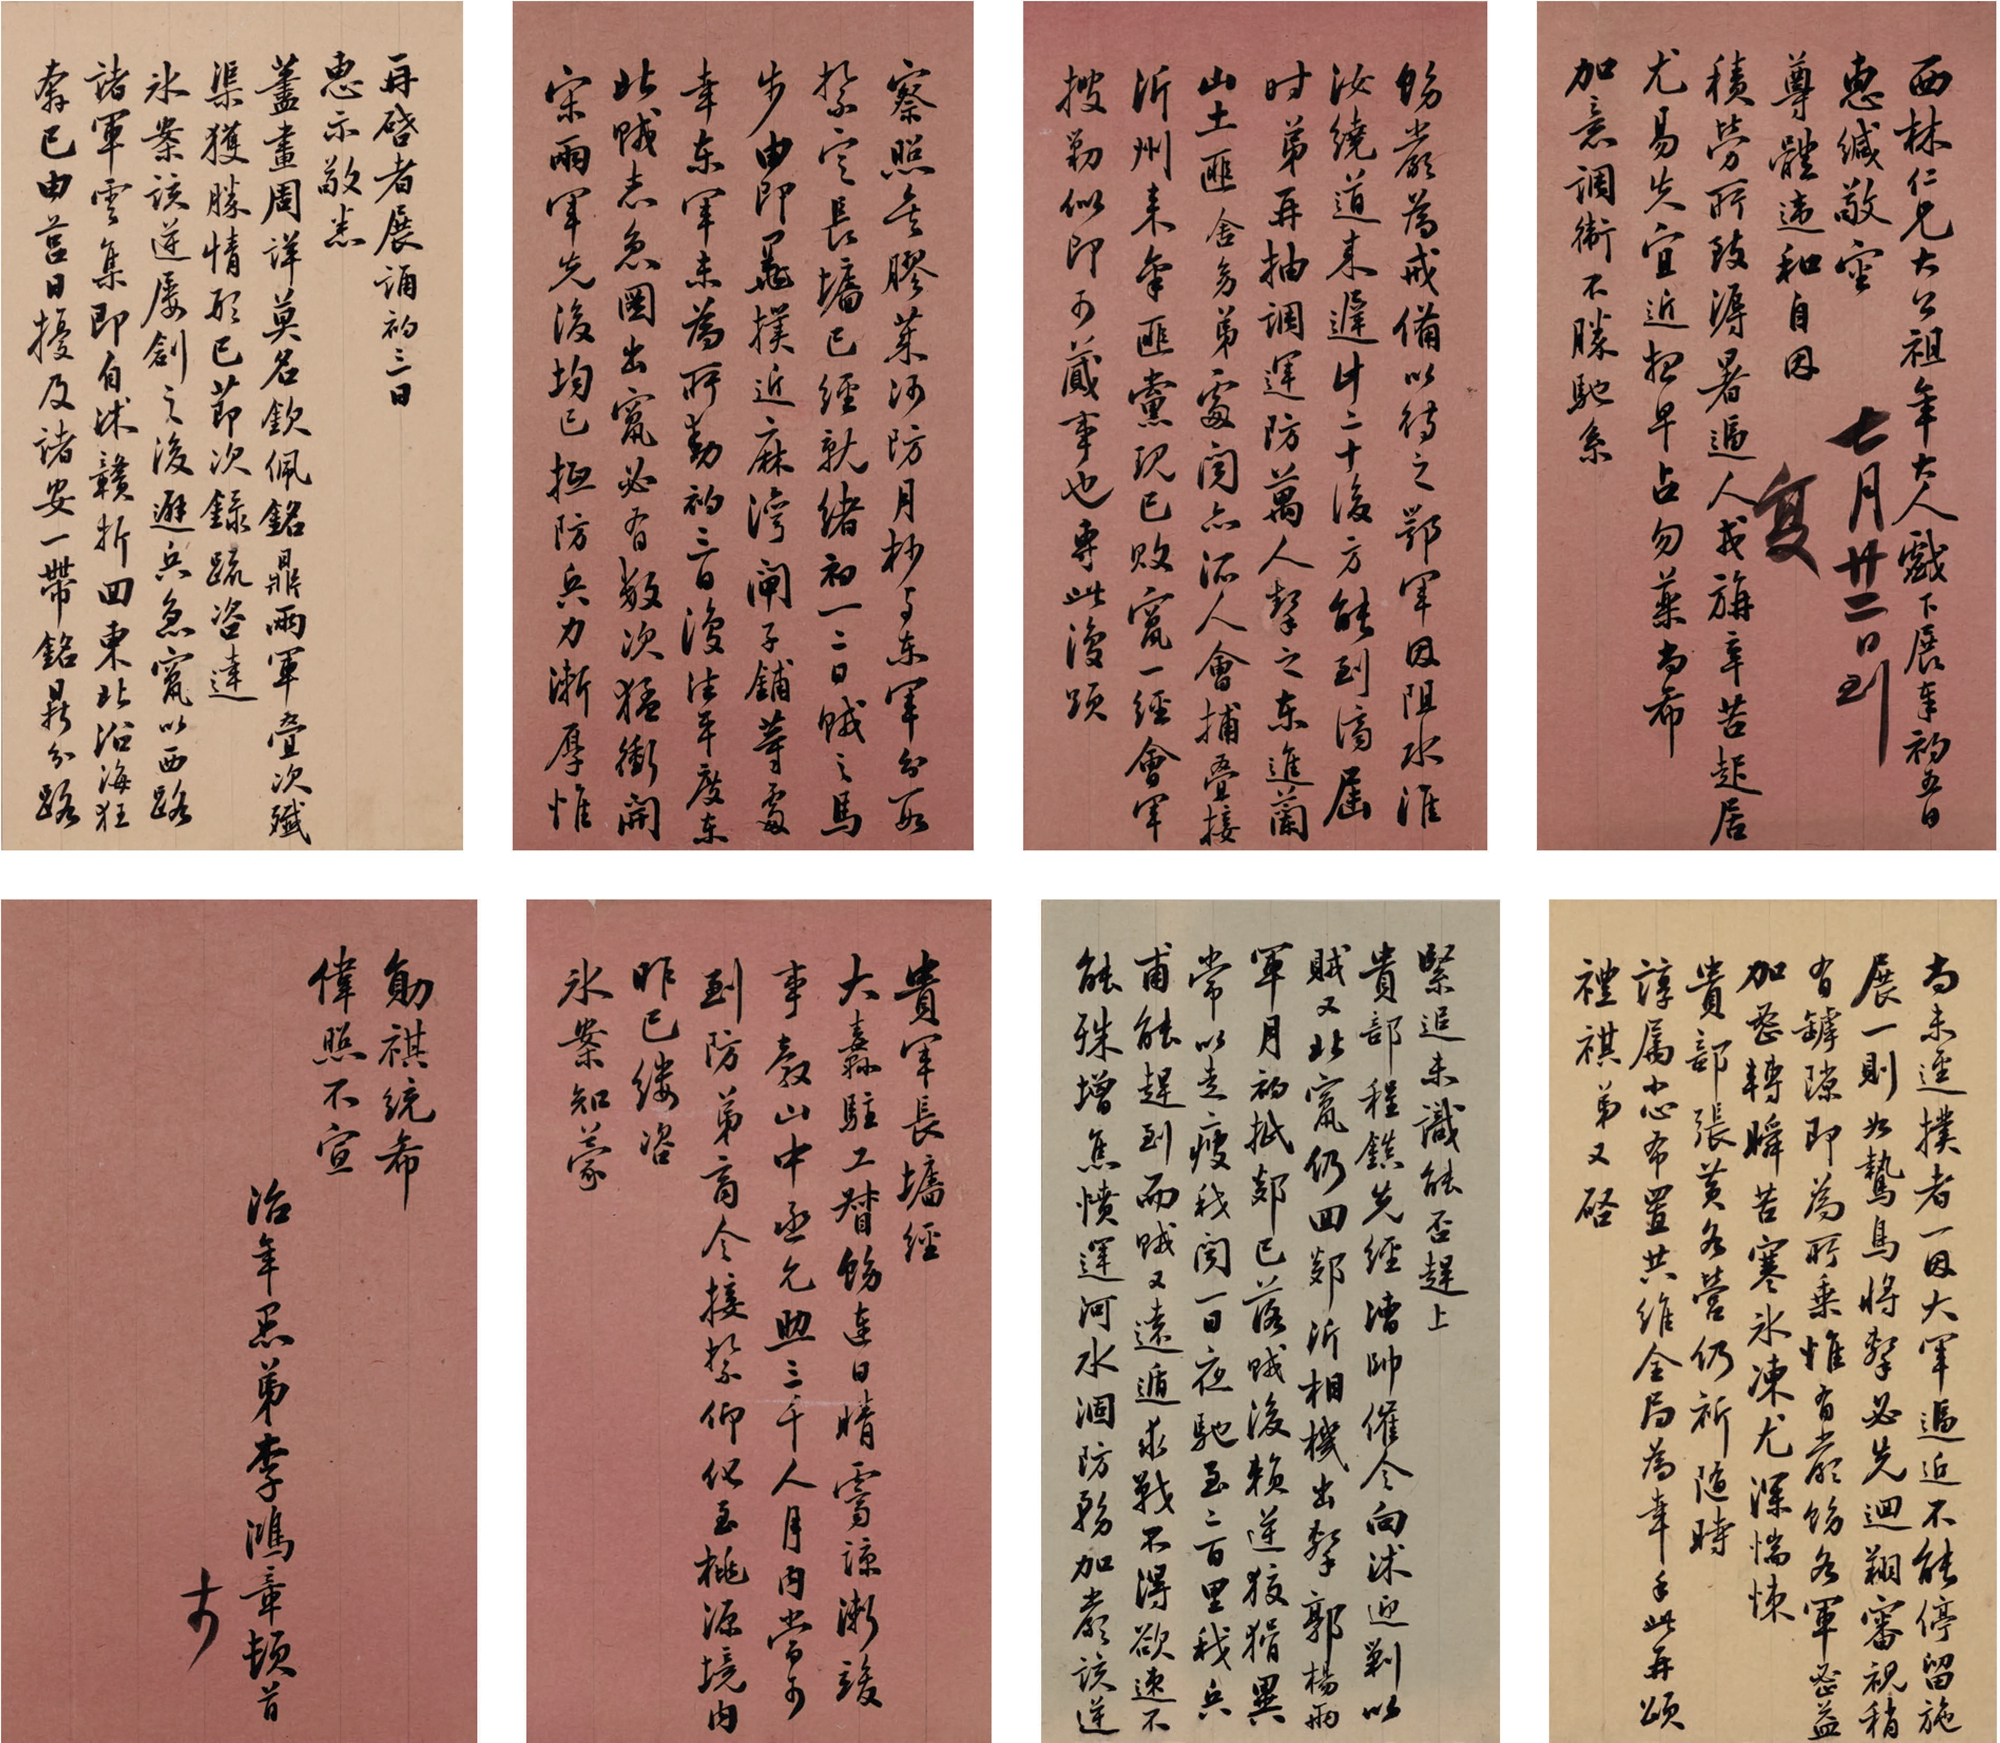 西林仁兄大公祖年大人戲下展奉初五日
惠緘敬審
尊體違和自因
積勞所致溽暑逼人戎旃辛苦起居
尤易失宜近想早占勿藥尚希
加意調衛不勝馳系
七月廿二日到
復
飭嚴為戒備以待之鄂軍因阻水淮
汝繞道來遲廿二十後方能到濟屆
时弟再抽調運防萬人擊之東進蘭
山土匪舍弟處聞亦派人會捕疊接
沂州來牟匪黨現已敗竄一經會軍
搜剿似即可蕆事也專此復頌
察照至膠萊河防月杪与東軍分段
紮定長墻已經就緒初一二日賊之馬
步由即墨撲近麻灣閘子鋪等處
幸東軍未為所動初三日復往平度東
北賊志急圖出竄必有數次猛衝開
宋兩軍先後均已抵防兵力漸厚惟
再啓者展誦初三日
惠示敬悉
藎畫周詳莫名欽佩銘鼎兩軍疊次殲
渠獲勝情形已節次錄疏咨達
冰案該逆屢創之後避兵急竄以西路
諸軍雲集即自沭贛折回東北沿海狂
奔已由莒日擾及諸安一帶銘鼎分路
尚未逕撲者一因大軍逼近不能停留施
展一則如鷙鳥將擊必先迴翔審視稍
有罅隙即為所乘惟有嚴飭各軍密益
加密轉瞬苦寒冰凍尤深惴悚
貴部張黃各營仍祈隨時
諄屬小心布置共維全局為幸手此再頌
禮祺弟又啓
緊追未識能否趕上
貴部程鎮先經漕帥催令向沭迎剿以
賊又北竄仍回郯沂相機出擊郭楊兩
軍月初抵郯已落賊後賴逆狡猾異
常以走疲我聞一日夜馳至二百里我兵
甫能趕到而賊又遠遁求戰不得欲速不
能殊增焦憤運河水涸防務加嚴該逆
貴軍長墻經
大纛駐工督飭連日晴霽諒漸竣
事教山中丞允助三千人月內當可
到防弟商令接紮仰化至桃源境內
昨已縷咨
冰案知蒙
勛祺統希
偉照不宣
治年愚弟李鴻章頓首